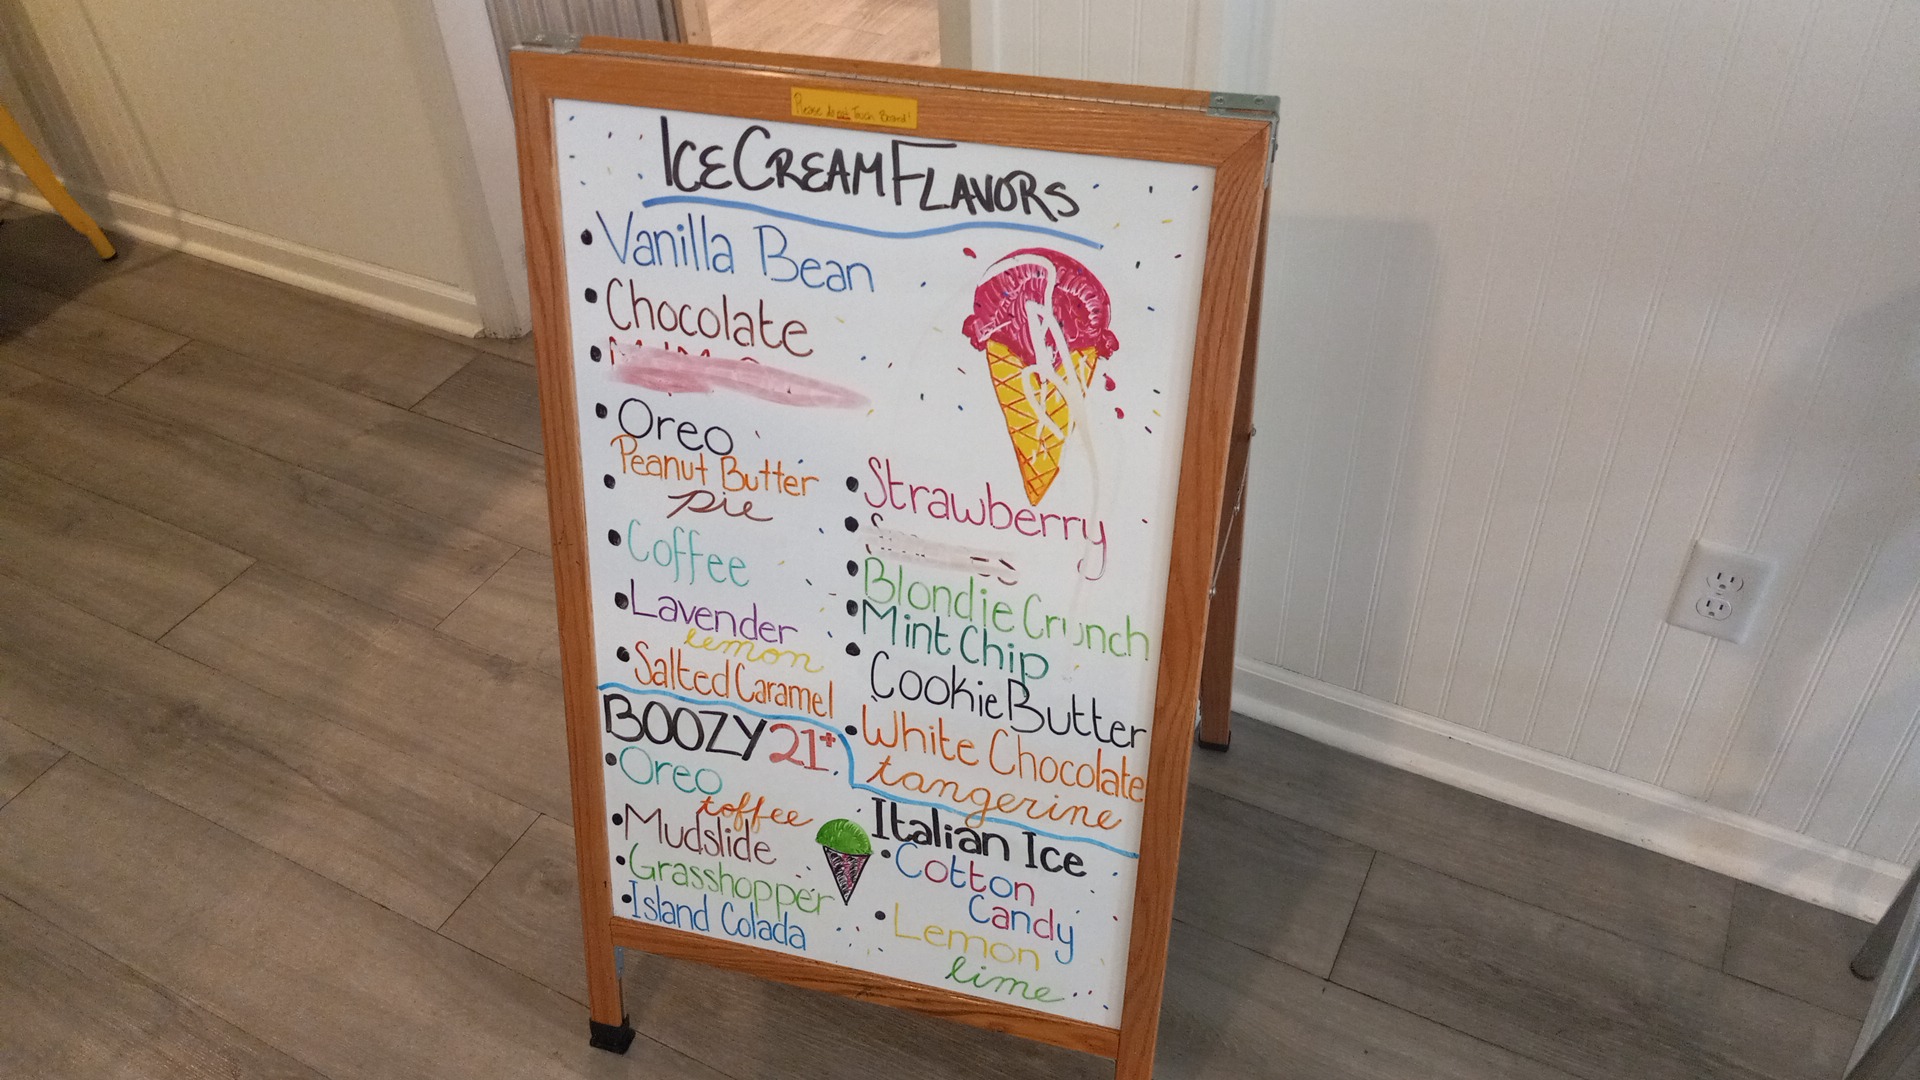 Please do not Touch Board!
ICE CREAM FLAVORS
• Vanilla Bean
• Chocolate
•
• Oreo
• Peanut Butter
pie
• Coffee
• Lavender
lemon
• Salted Caramel
• Strawberry
•
• Blondie Crunch
• Mint Chip
• Cookie Butter
• White Chocolate
tangerine
BOOZY 21+
• Oreo
toffee
• Mudslide
• Grasshopper
• Island Colada
Italian Ice
• Cotton
Candy
• Lemon
lime